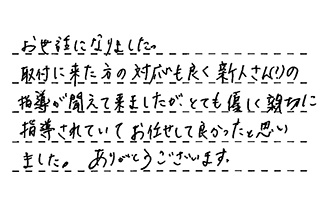 お世話になりました。
取付に来た方の対応も良く新人さん(?)の
指導が聞えて来ましたが、とても優しく親切に
指導されていてお任せして良かったと思い
ました。ありがとうございます。